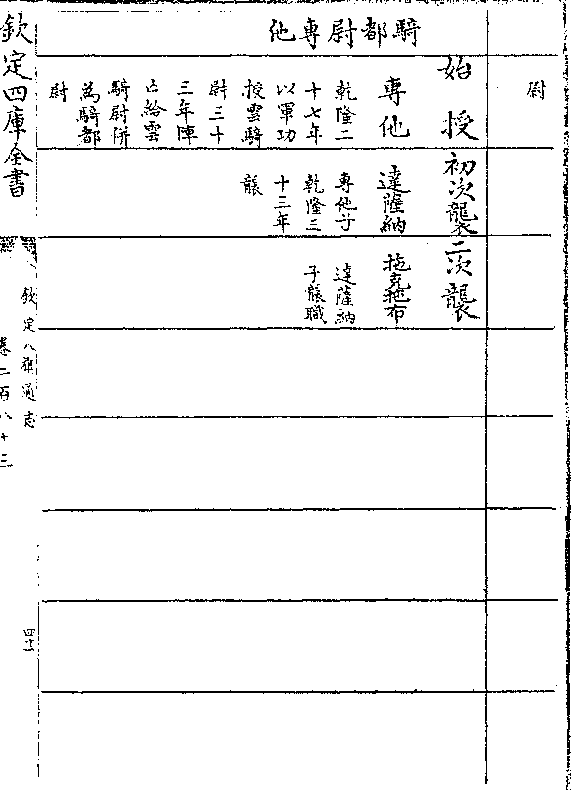 尉
騎都尉專他
始授
專他
乾隆二
十七年
以軍功
授雲騎
尉三十
三年陣
亡給雲
騎尉併
為騎都
尉
初次襲
達薩納
專他子
乾隆三
十三年
襲
二次襲
拖克拖布
達薩納
子襲職
欽定四庫全書
欽定八旗通志
卷二百八十三